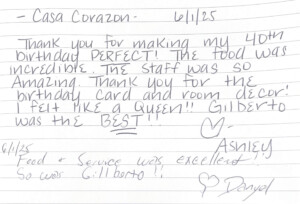 - Casa Corazon - 6/1/25
Thank you for making my 40th
birthday PERFECT! The food was
incredible. The staff was so
Amazing. Thank you for the
birthday card and room decor!
I felt like a Queen!! Gilberto
was the BEST!!
♡- Ashley
6/1/25
Food + Service was excellent!!
So was Gilberto!!
♡ Denyol